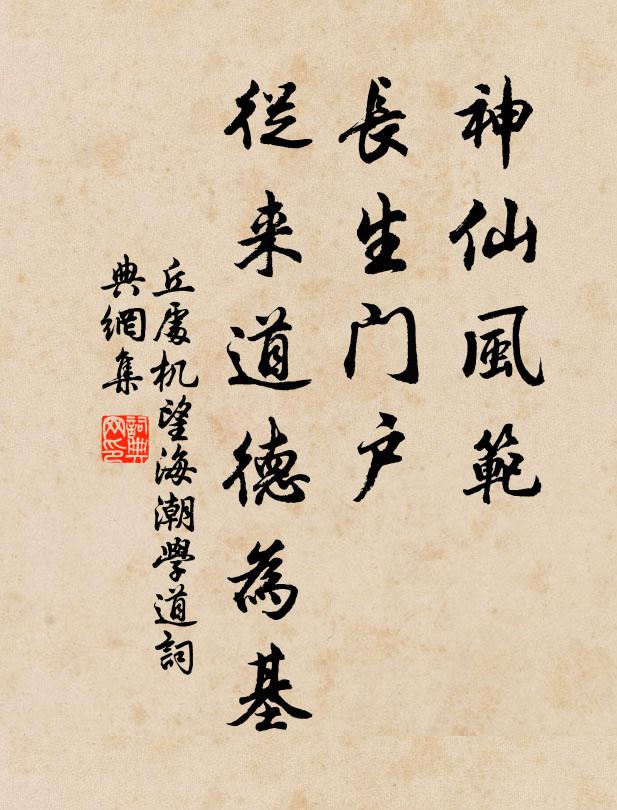 神仙風範
長生门户
從来道德為基
丘處机望海潮學道詞
典網集
詞典
网印